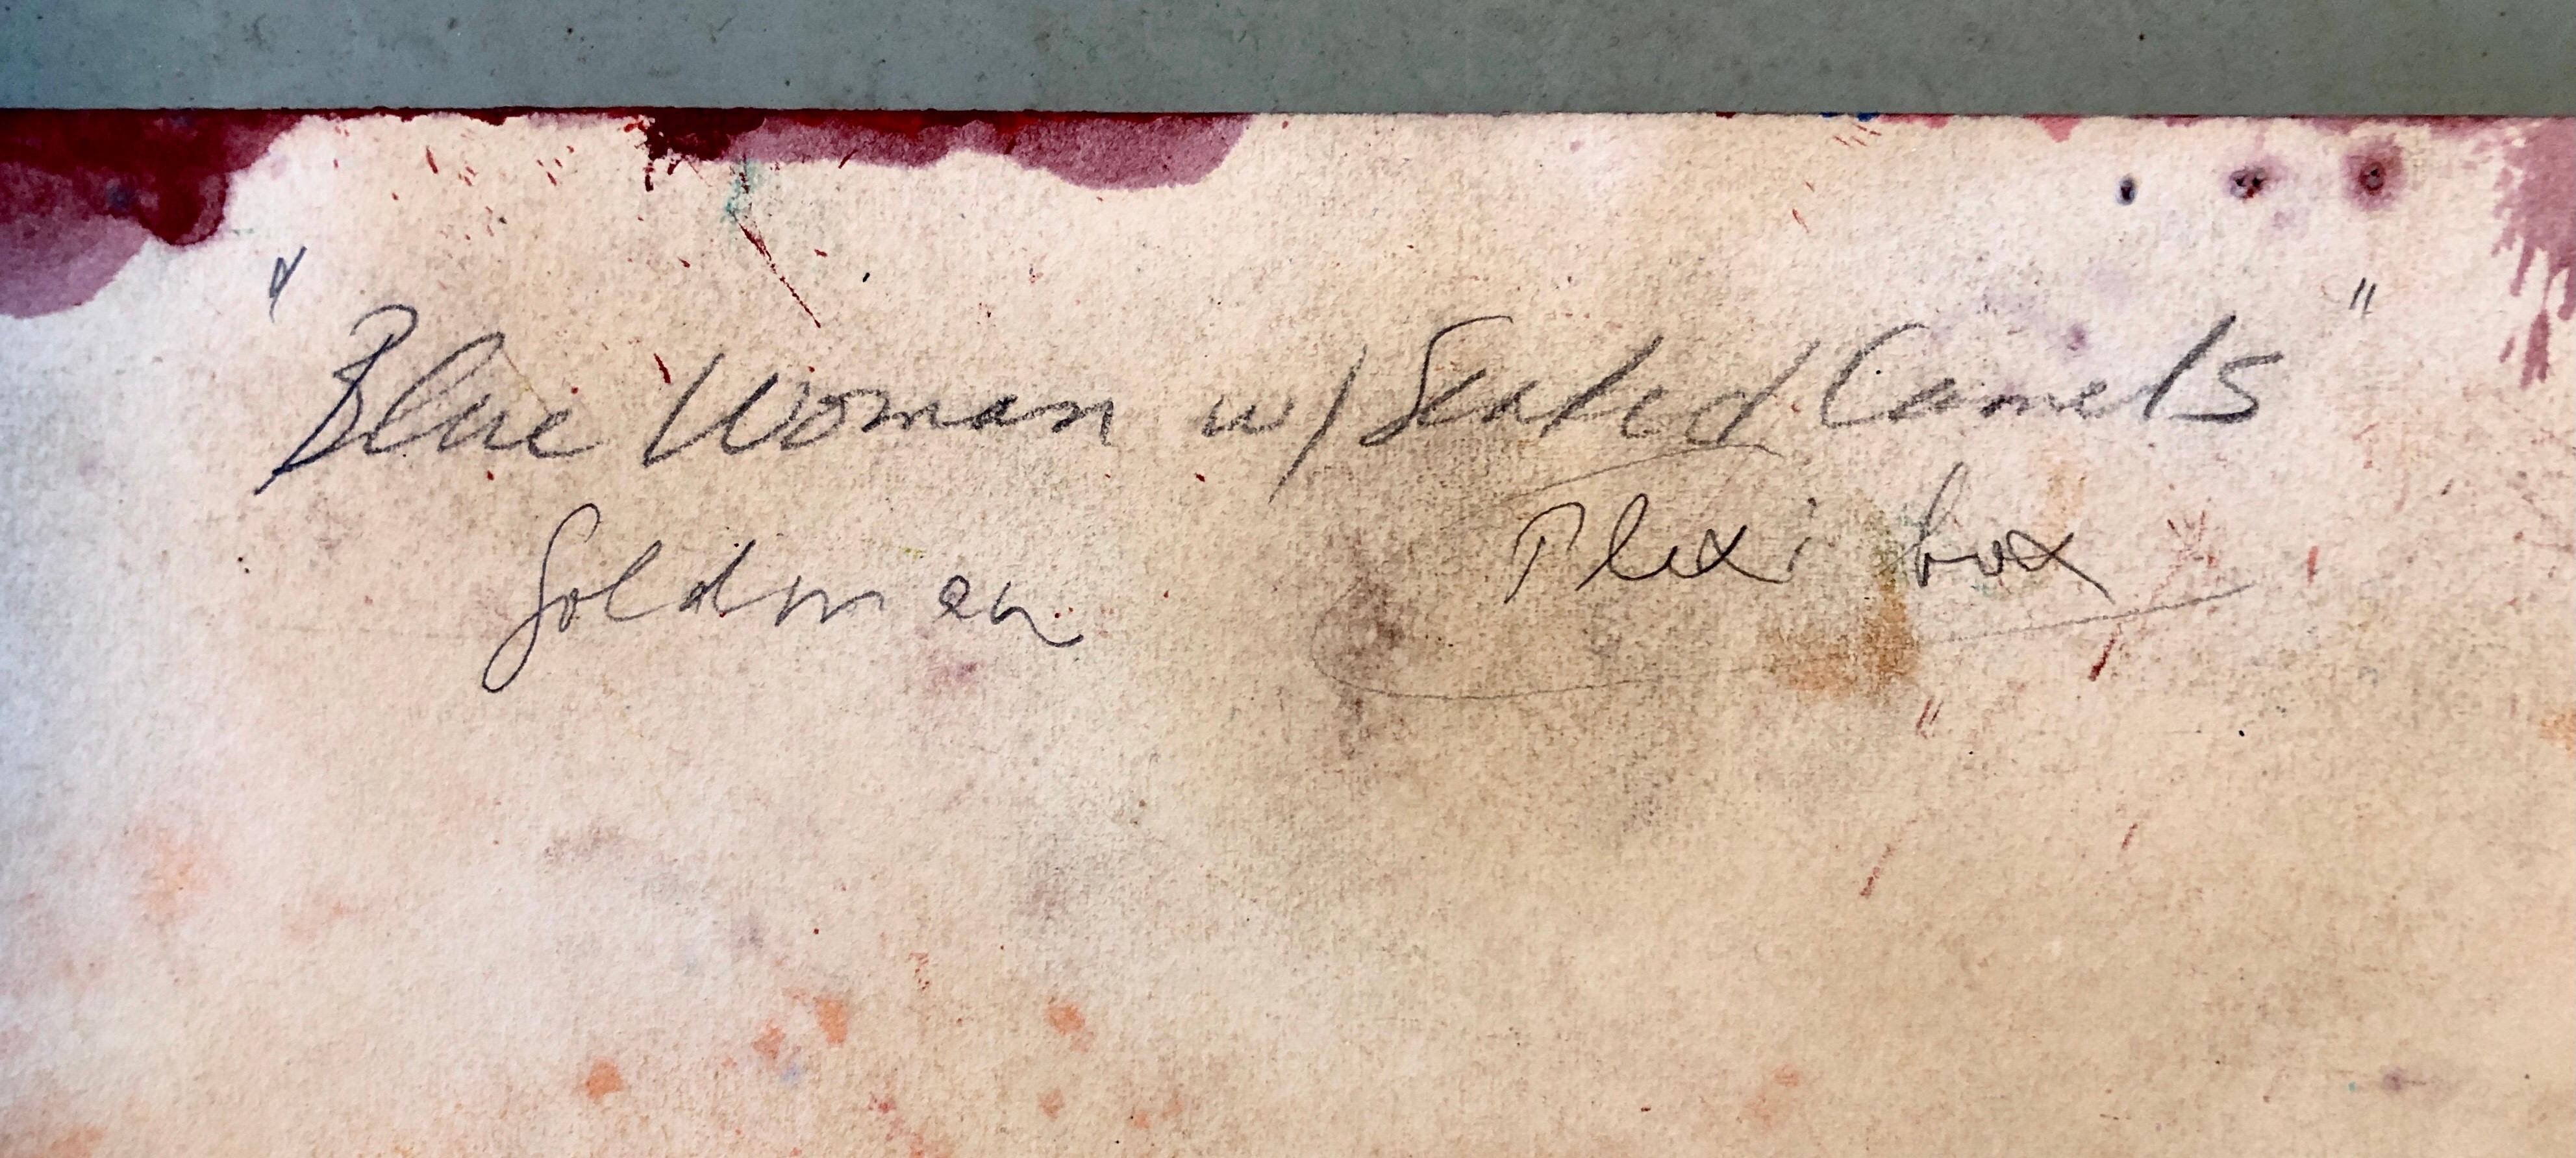 "Blue Woman w/ Seated Camels"
Goldman Plexi box